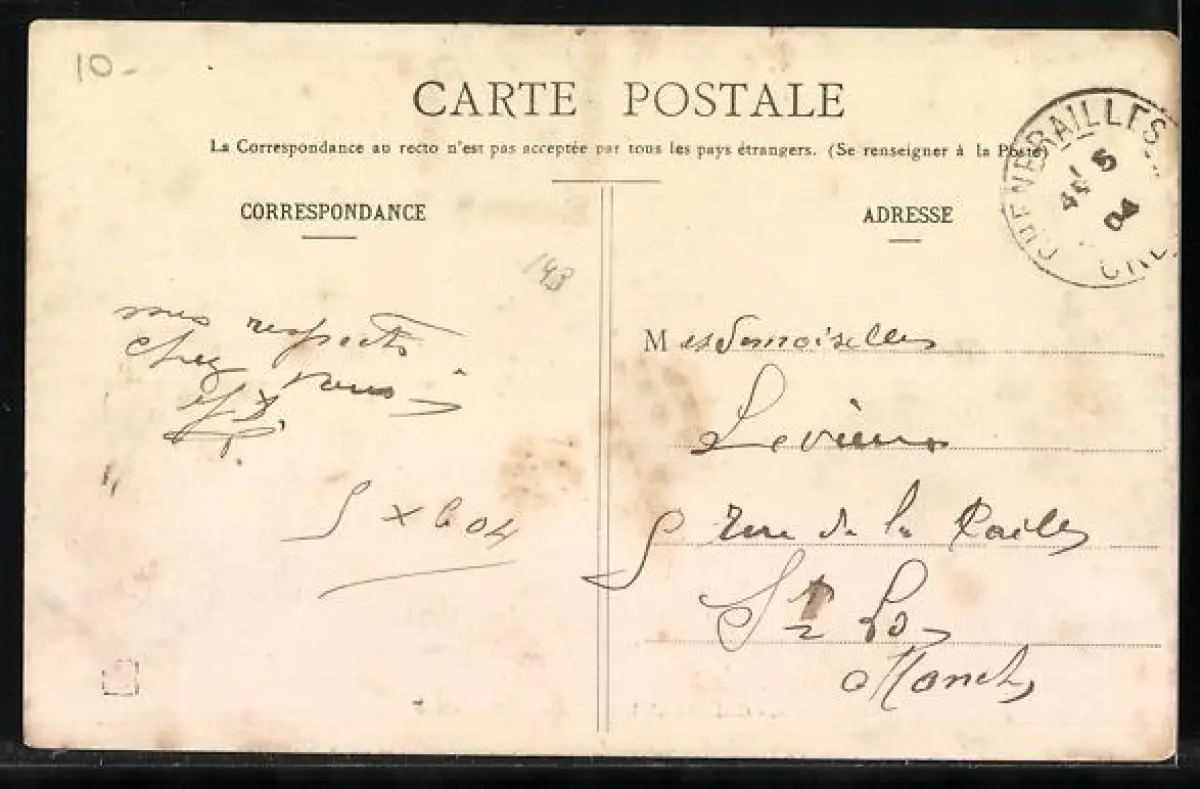 10-
CARTE POSTALE
La Correspondance au recto n'est pas acceptée par tous les pays étrangers. (Se renseigner à la Poste)
CORRESPONDANCE
ADRESSE
CHENERAILLES
5
04
mes respects
chez vous
5 X bre 04
Mesdemoiselles
5 rue de la
St Lo
Manche